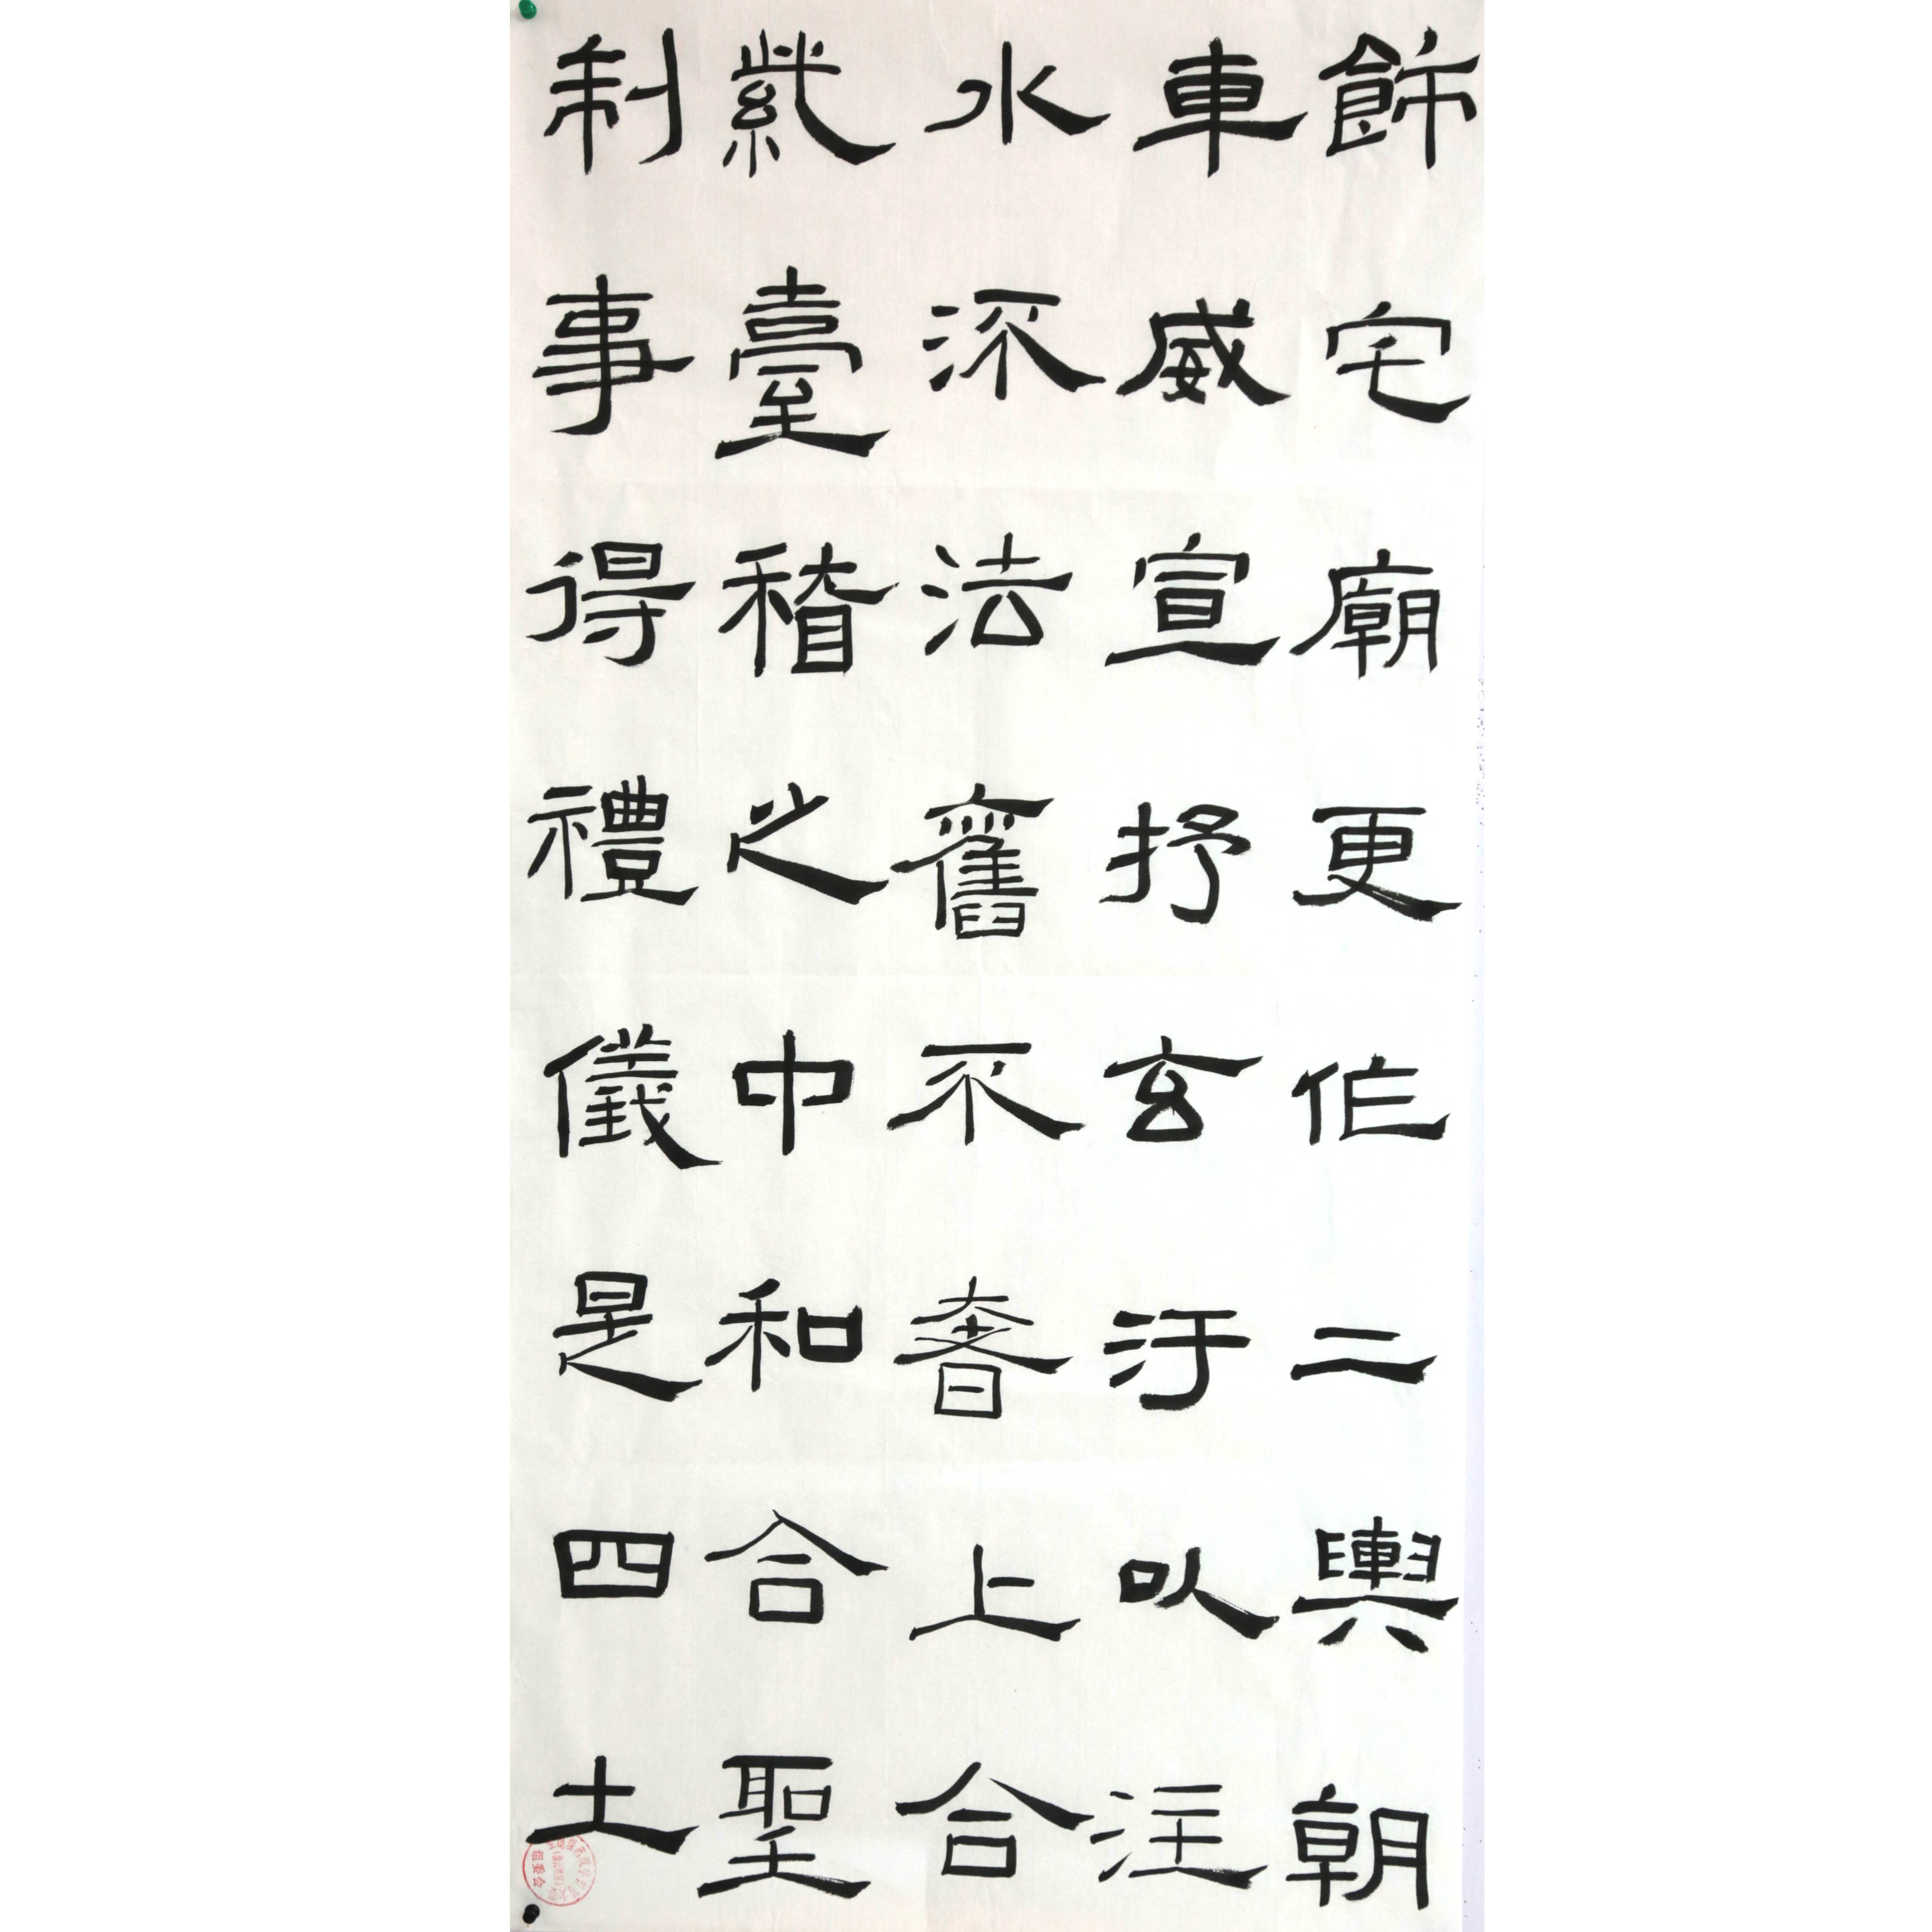 飾宅廟更作二輿朝
車威宣抒玄汙以注
水流法舊不奢上合
紫臺稽之中和合聖
制事得禮儀是四土
组委会